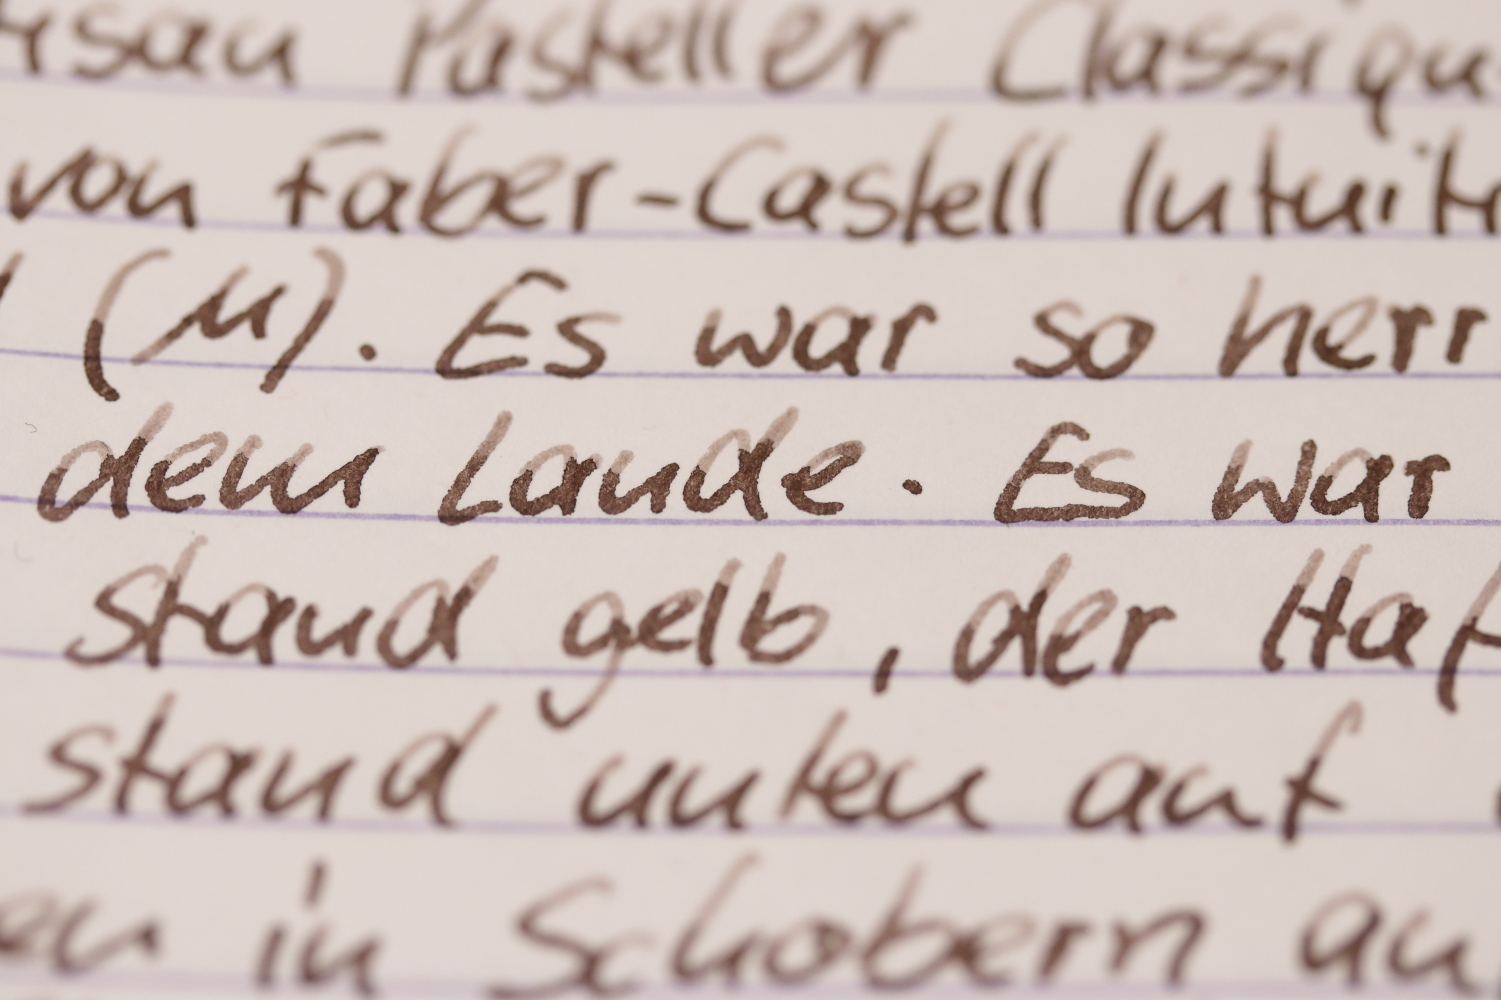 Pasteller Classiqu
von Faber-Castell Intuiti
(M). Es war so herr
dem Lande. Es war
stand gelb, der Haf
stand unten auf
en in Schobern au